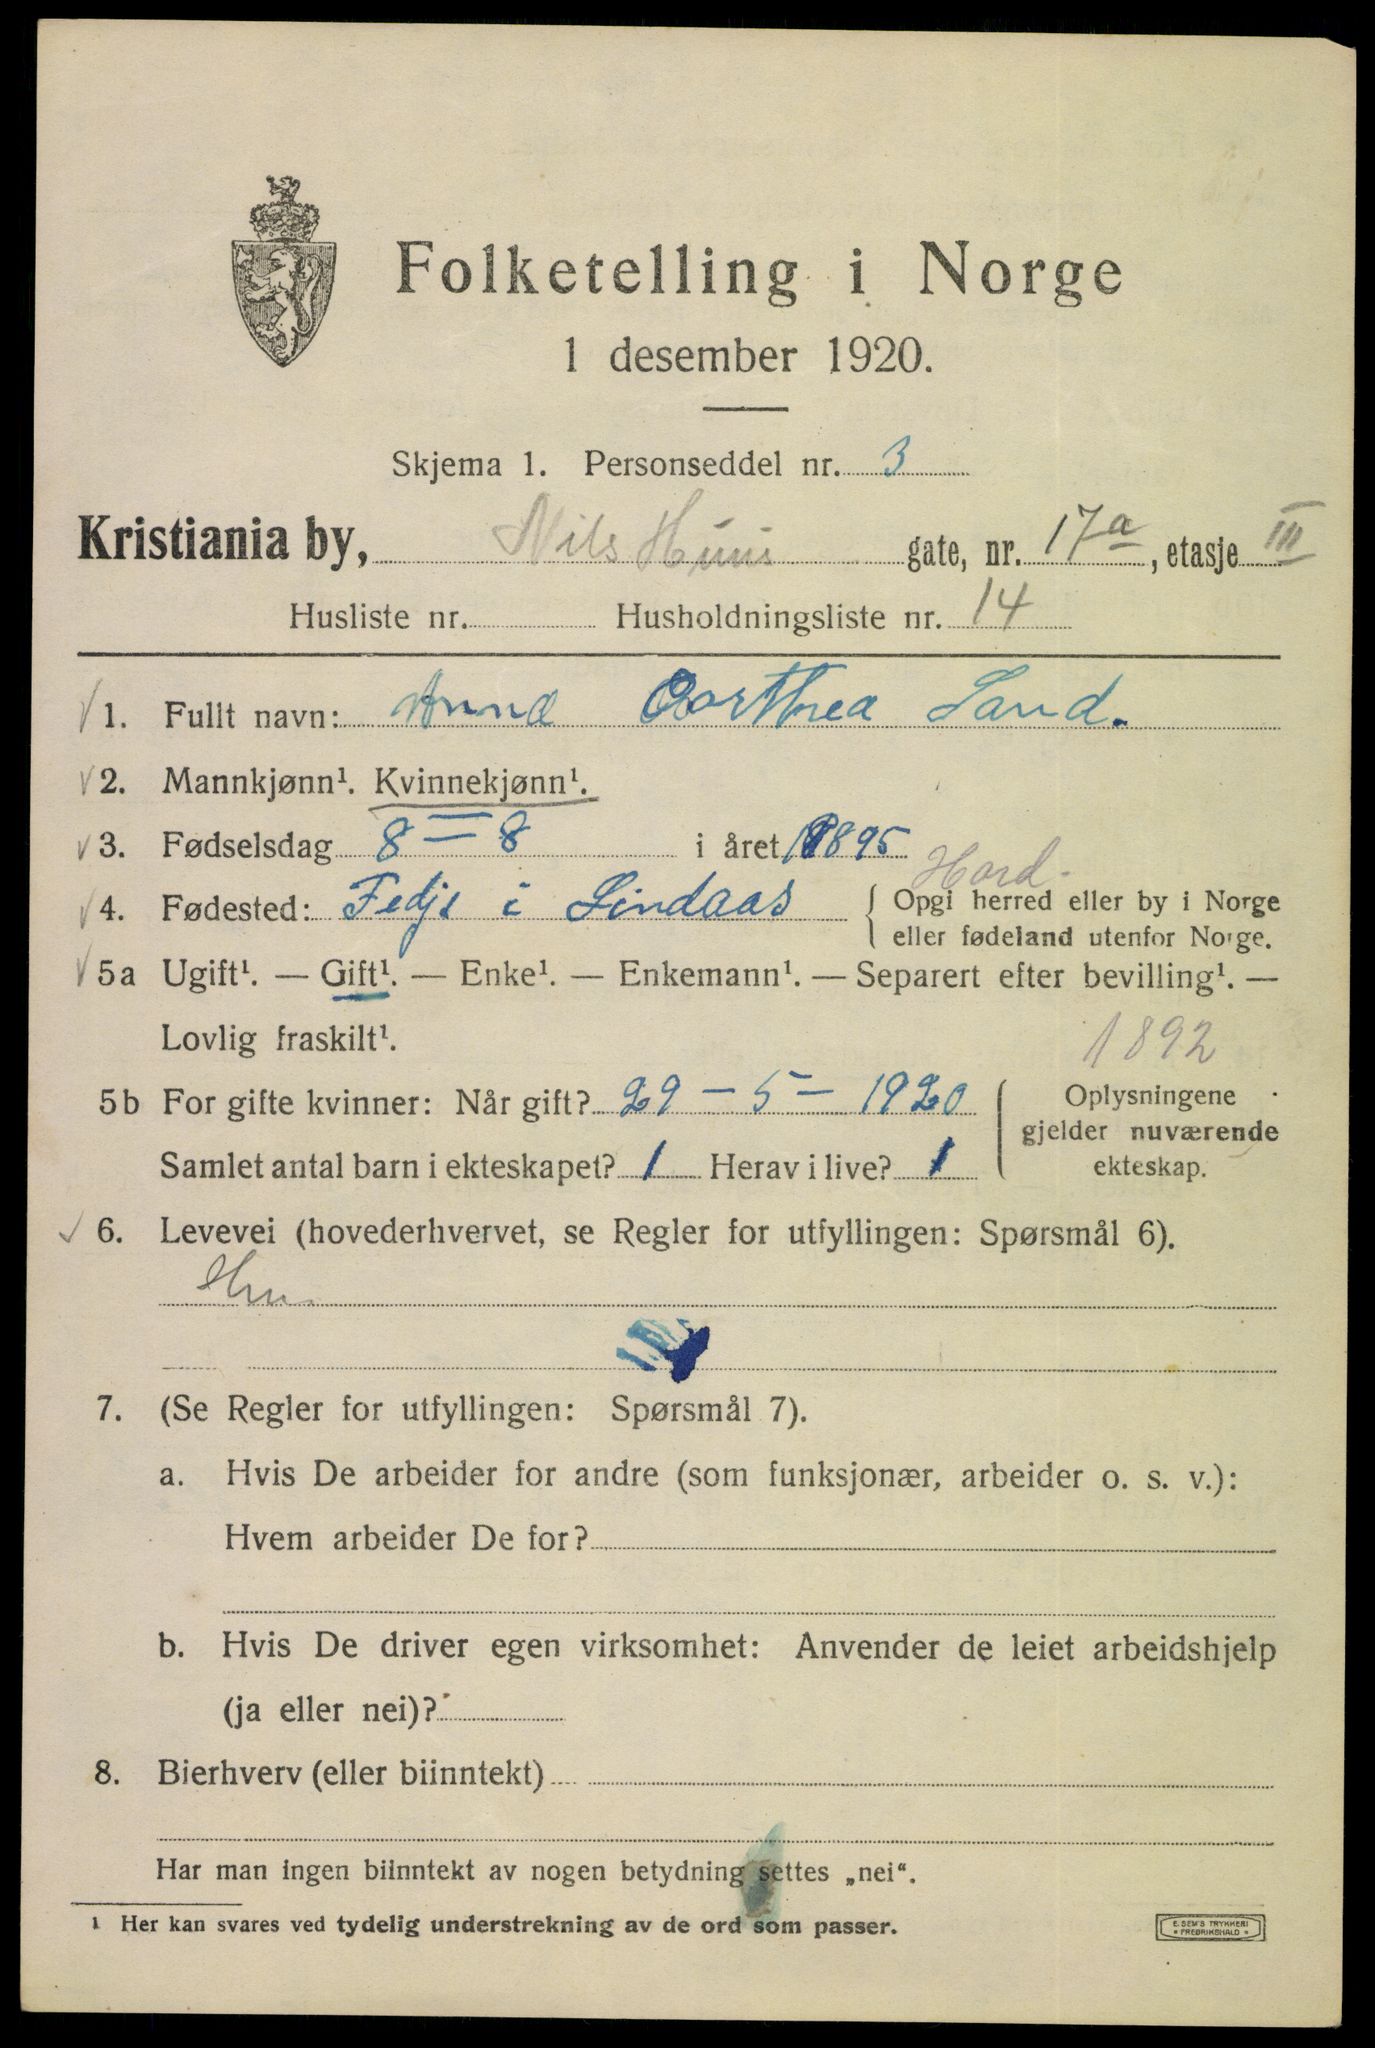 Folketelling i Norge
1 desember 1920.
Skjema 1. Personseddel nr. 3
Kristiania by, Nils Huus gate, nr. 17a, etasje III
Husliste nr. Husholdningsliste nr. 14
1. Fullt navn: Anna Dorthea Sand.
2. Mannkjønn¹. Kvinnekjønn¹.
3. Fødselsdag 8 = 8 i året 1895
Hord.
4. Fødested: Fedje i Lindaas { Opgi herred eller by i Norge
eller fødeland utenfor Norge.
5a Ugift¹. — Gift¹. — Enke¹. — Enkemann¹. — Separert efter bevilling¹. —
Lovlig fraskilt¹.
1892
5b For gifte kvinner: Når gift? 29 – 5 – 1920
Samlet antal barn i ekteskapet? 1 Herav i live? 1
Oplysningene
gjelder nuværende
ekteskap.
6. Levevei (hovederhvervet, se Regler for utfyllingen: Spørsmål 6).
Hm.
7. (Se Regler for utfyllingen: Spørsmål 7).
a. Hvis De arbeider for andre (som funksjonær, arbeider o. s. v.):
Hvem arbeider De for?
b. Hvis De driver egen virksomhet: Anvender de leiet arbeidshjelp
(ja eller nei)?
8. Bierhverv (eller biinntekt)
Har man ingen biinntekt av nogen betydning settes „nei“.
¹ Her kan svares ved tydelig understrekning av de ord som passer.
E. SEM'S TRYKKERI
* FREDRIKSHALD *